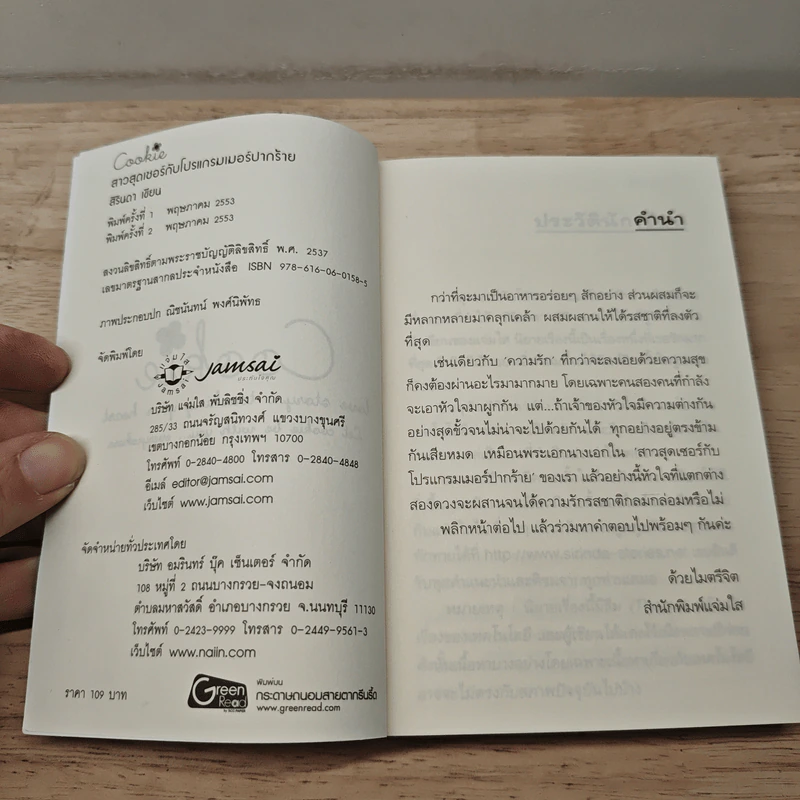 Cookie
สาวสุดเซอร์กับโปรแกรมเมอร์ปากร้าย
สิรินดา เขียน
พิมพ์ครั้งที่ 1 พฤษภาคม 2553
พิมพ์ครั้งที่ 2 พฤษภาคม 2553
สงวนลิขสิทธิ์ตามพระราชบัญญัติลิขสิทธิ์ พ.ศ. 2537
เลขมาตรฐานสากลประจำหนังสือ ISBN 978-616-06-0158-5
ภาพประกอบปก ณิชนันทน์ พงศ์นิพัทธ
จัดพิมพ์โดย
แจ่มใส
Jamsai
jamsai
ประทับใจคุณ
บริษัท แจ่มใส พับลิชชิ่ง จำกัด
285/33 ถนนจรัญสนิทวงศ์ แขวงบางขุนศรี
เขตบางกอกน้อย กรุงเทพฯ 10700
โทรศัพท์ 0-2840-4800 โทรสาร 0-2840-4848
อีเมล์ editor@jamsai.com
เว็บไซต์ www.jamsai.com
จัดจำหน่ายทั่วประเทศโดย
บริษัท อมรินทร์ บุ๊ค เซ็นเตอร์ จำกัด
108 หมู่ที่ 2 ถนนบางกรวย-จงถนอม
ตำบลมหาสวัสดิ์ อำเภอบางกรวย จ.นนทบุรี 11130
โทรศัพท์ 0-2423-9999 โทรสาร 0-2449-9561-3
เว็บไซต์ www.naiin.com
ราคา 109 บาท
Green
Read
พิมพ์บน
กระดาษถนอมสายตากรีนรี้ด
www.greenread.com
คำนำ
กว่าที่จะมาเป็นอาหารอร่อยๆ สักอย่าง ส่วนผสมก็จะ
มีหลากหลายมาคลุกเคล้า ผสมผสานให้ได้รสชาติที่ลงตัว
ที่สุด
เช่นเดียวกับ 'ความรัก' ที่กว่าจะลงเอยด้วยความสุข
ก็คงต้องผ่านอะไรมามากมาย โดยเฉพาะคนสองคนที่กำลัง
จะเอาหัวใจมาผูกกัน แต่...ถ้าเจ้าของหัวใจมีความต่างกัน
อย่างสุดขั้วจนไม่น่าจะไปด้วยกันได้ ทุกอย่างอยู่ตรงข้าม
กันเสียหมด เหมือนพระเอกนางเอกใน 'สาวสุดเซอร์กับ
โปรแกรมเมอร์ปากร้าย' ของเรา แล้วอย่างนี้หัวใจที่แตกต่าง
สองดวงจะผสานจนได้ความรักรสชาติกลมกล่อมหรือไม่
พลิกหน้าต่อไป แล้วร่วมหาคำตอบไปพร้อมๆ กันค่ะ
ด้วยไมตรีจิต
สำนักพิมพ์แจ่มใส